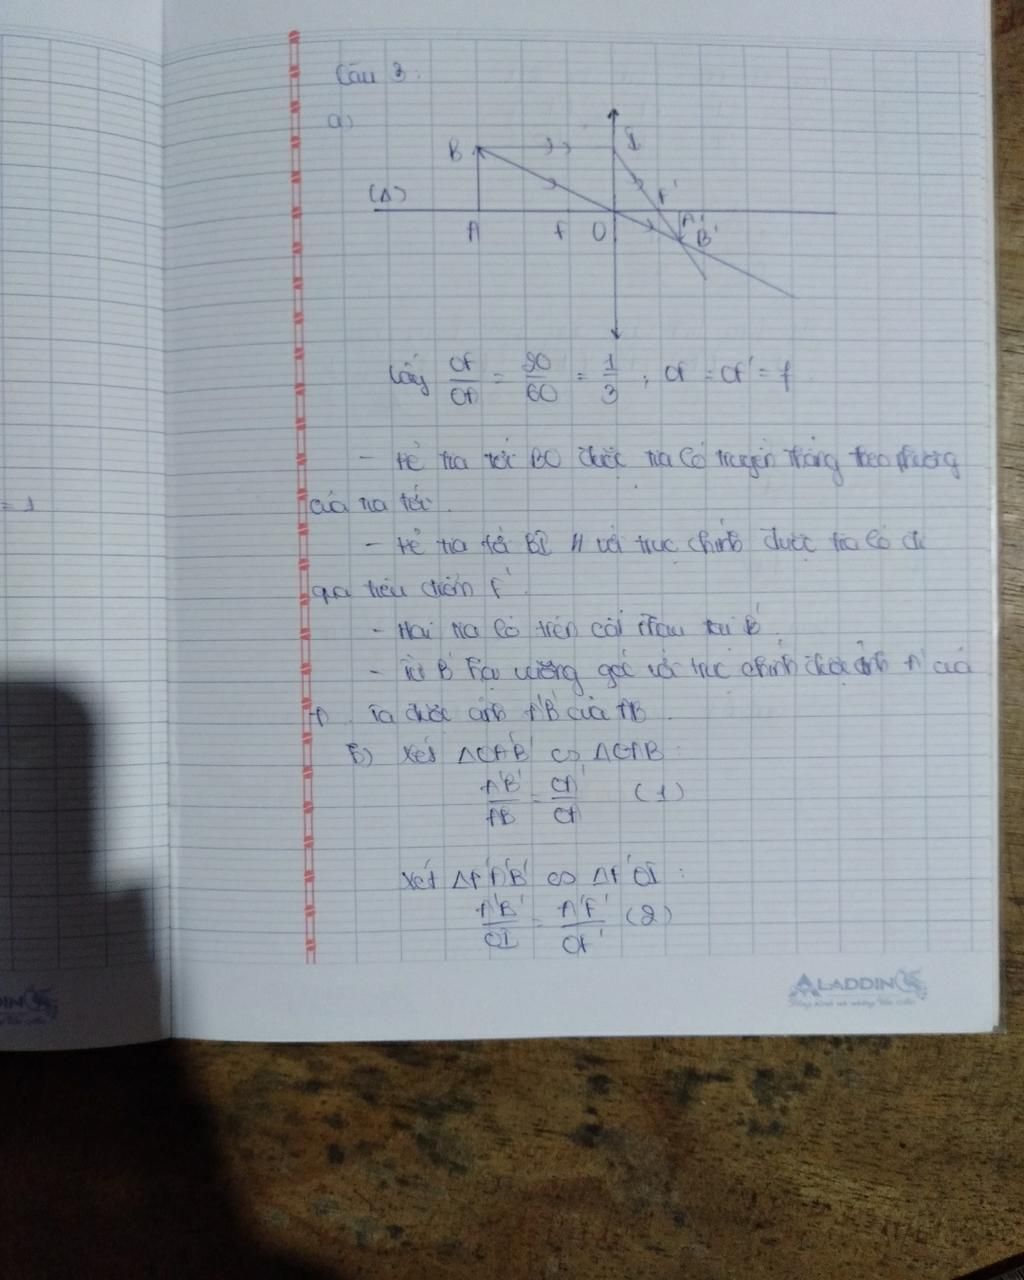 = 1
Câu 3:
a)
B I
(Δ) F'
A F O A' B'
Lấy OF/OA = 20/60 = 1/3 ; OF = OF' = f
- Kẻ tia tới BO được tia ló truyền thẳng theo phương
của tia tới.
- Kẻ tia tới BI // với trục chính được tia ló đi
qua tiêu điểm F'
- Hai tia ló trên cắt nhau tại B'
- Từ B' hạ vuông góc với trục chính được ảnh A' của
A. Ta được ảnh A'B' của AB
b) Xét ΔOA'B' ∽ ΔOAB:
A'B'/AB = OA'/OA (1)
Xét ΔF'A'B' ∽ ΔF'OI:
A'B'/OI = A'F'/OF' (2)
ALADDIN